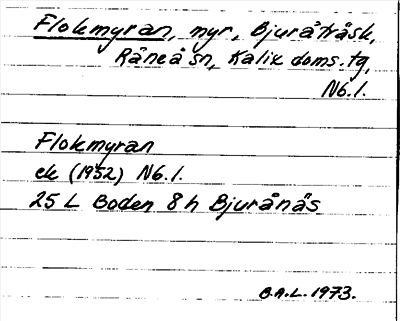 Flokmyran, myr, Bjuråträsk,
Råneå sn, Kalix doms. tg,
Nb.l.
Flokmyran
ek (1952) Nb.l.
25 L Boden 8h Bjurånäs
B.A.L. 1973.